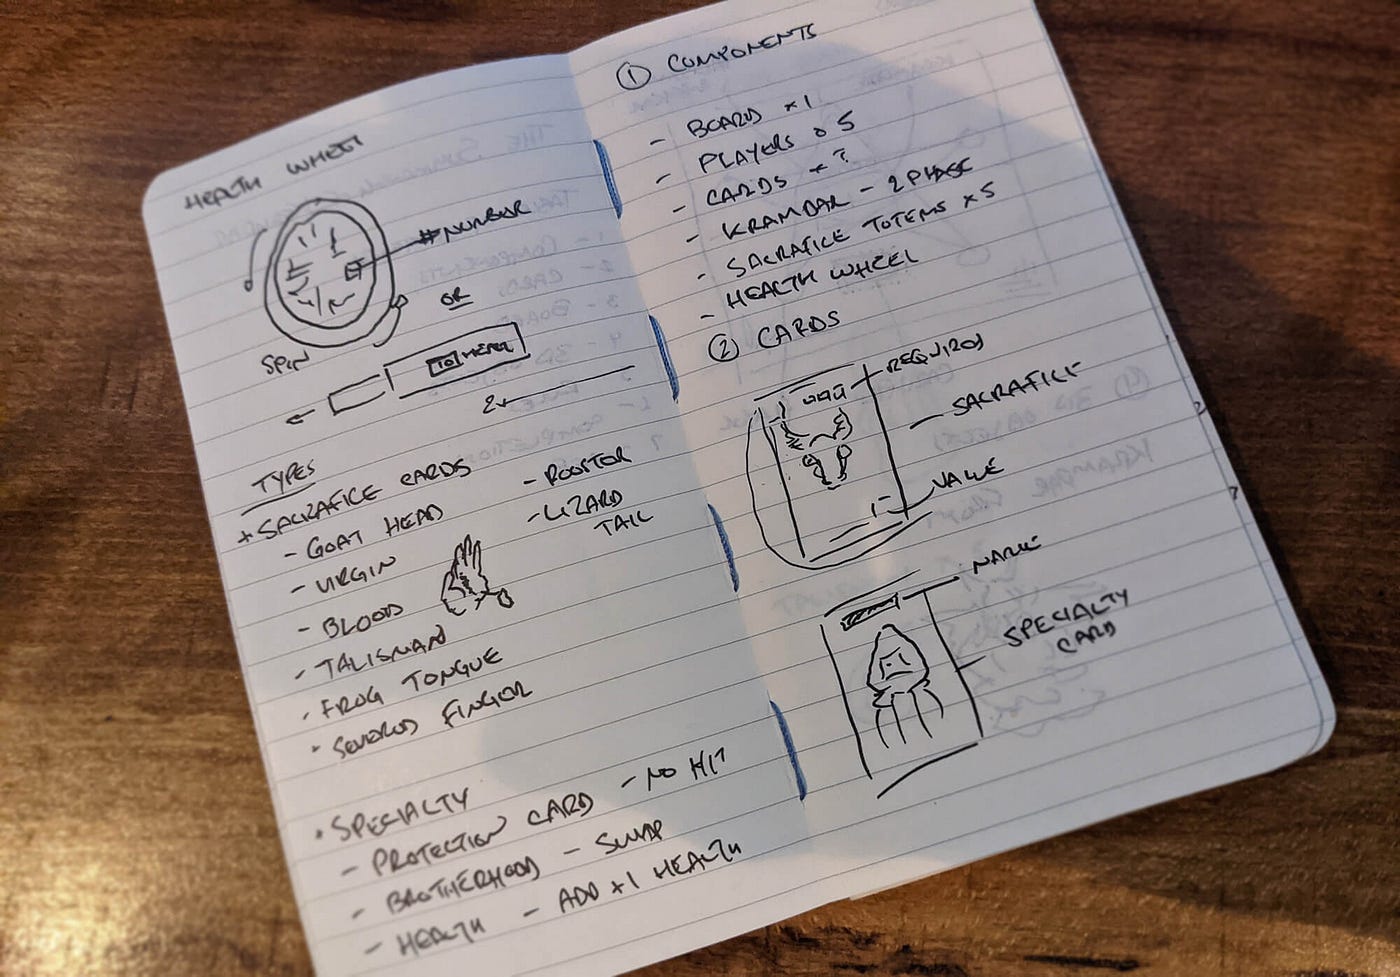 HEALTH WHEEL
#NUMBER
OR
SPIN
10 HEAL
2
TYPES
+ SACRAFICE CARDS
- GOAT HEAD
- VIRGIN
- BLOOD
- TALISMAN
- FROG TONGUE
- SEVERED FINGER
- ROOSTER
- LIZARD
TAIL
• SPECIALTY
- PROTECTION CARD - NO HIT
- BROTHERHOOD - SWAP
- HEALTH - ADD +1 HEALTH
① COMPONENTS
- BOARD x1
- PLAYERS 5
- CARDS ?
- KRAMPAR - 2 PHASE
- SACRAFICE TOTEMS x5
- HEALTH WHEEL
② CARDS
REQUIRED
SACRAFICE
VALUE
NAME
SPECIALTY
CARD